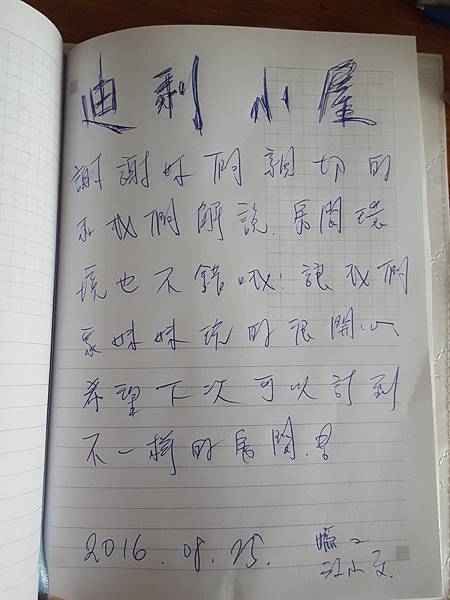 迪利小屋
謝謝妳們親切的
和我們解說.房間環
境也不錯哦!讓我們
家妹妹玩的很開心
希望下次可以訂到
不一樣的房間.
2016.08.25.